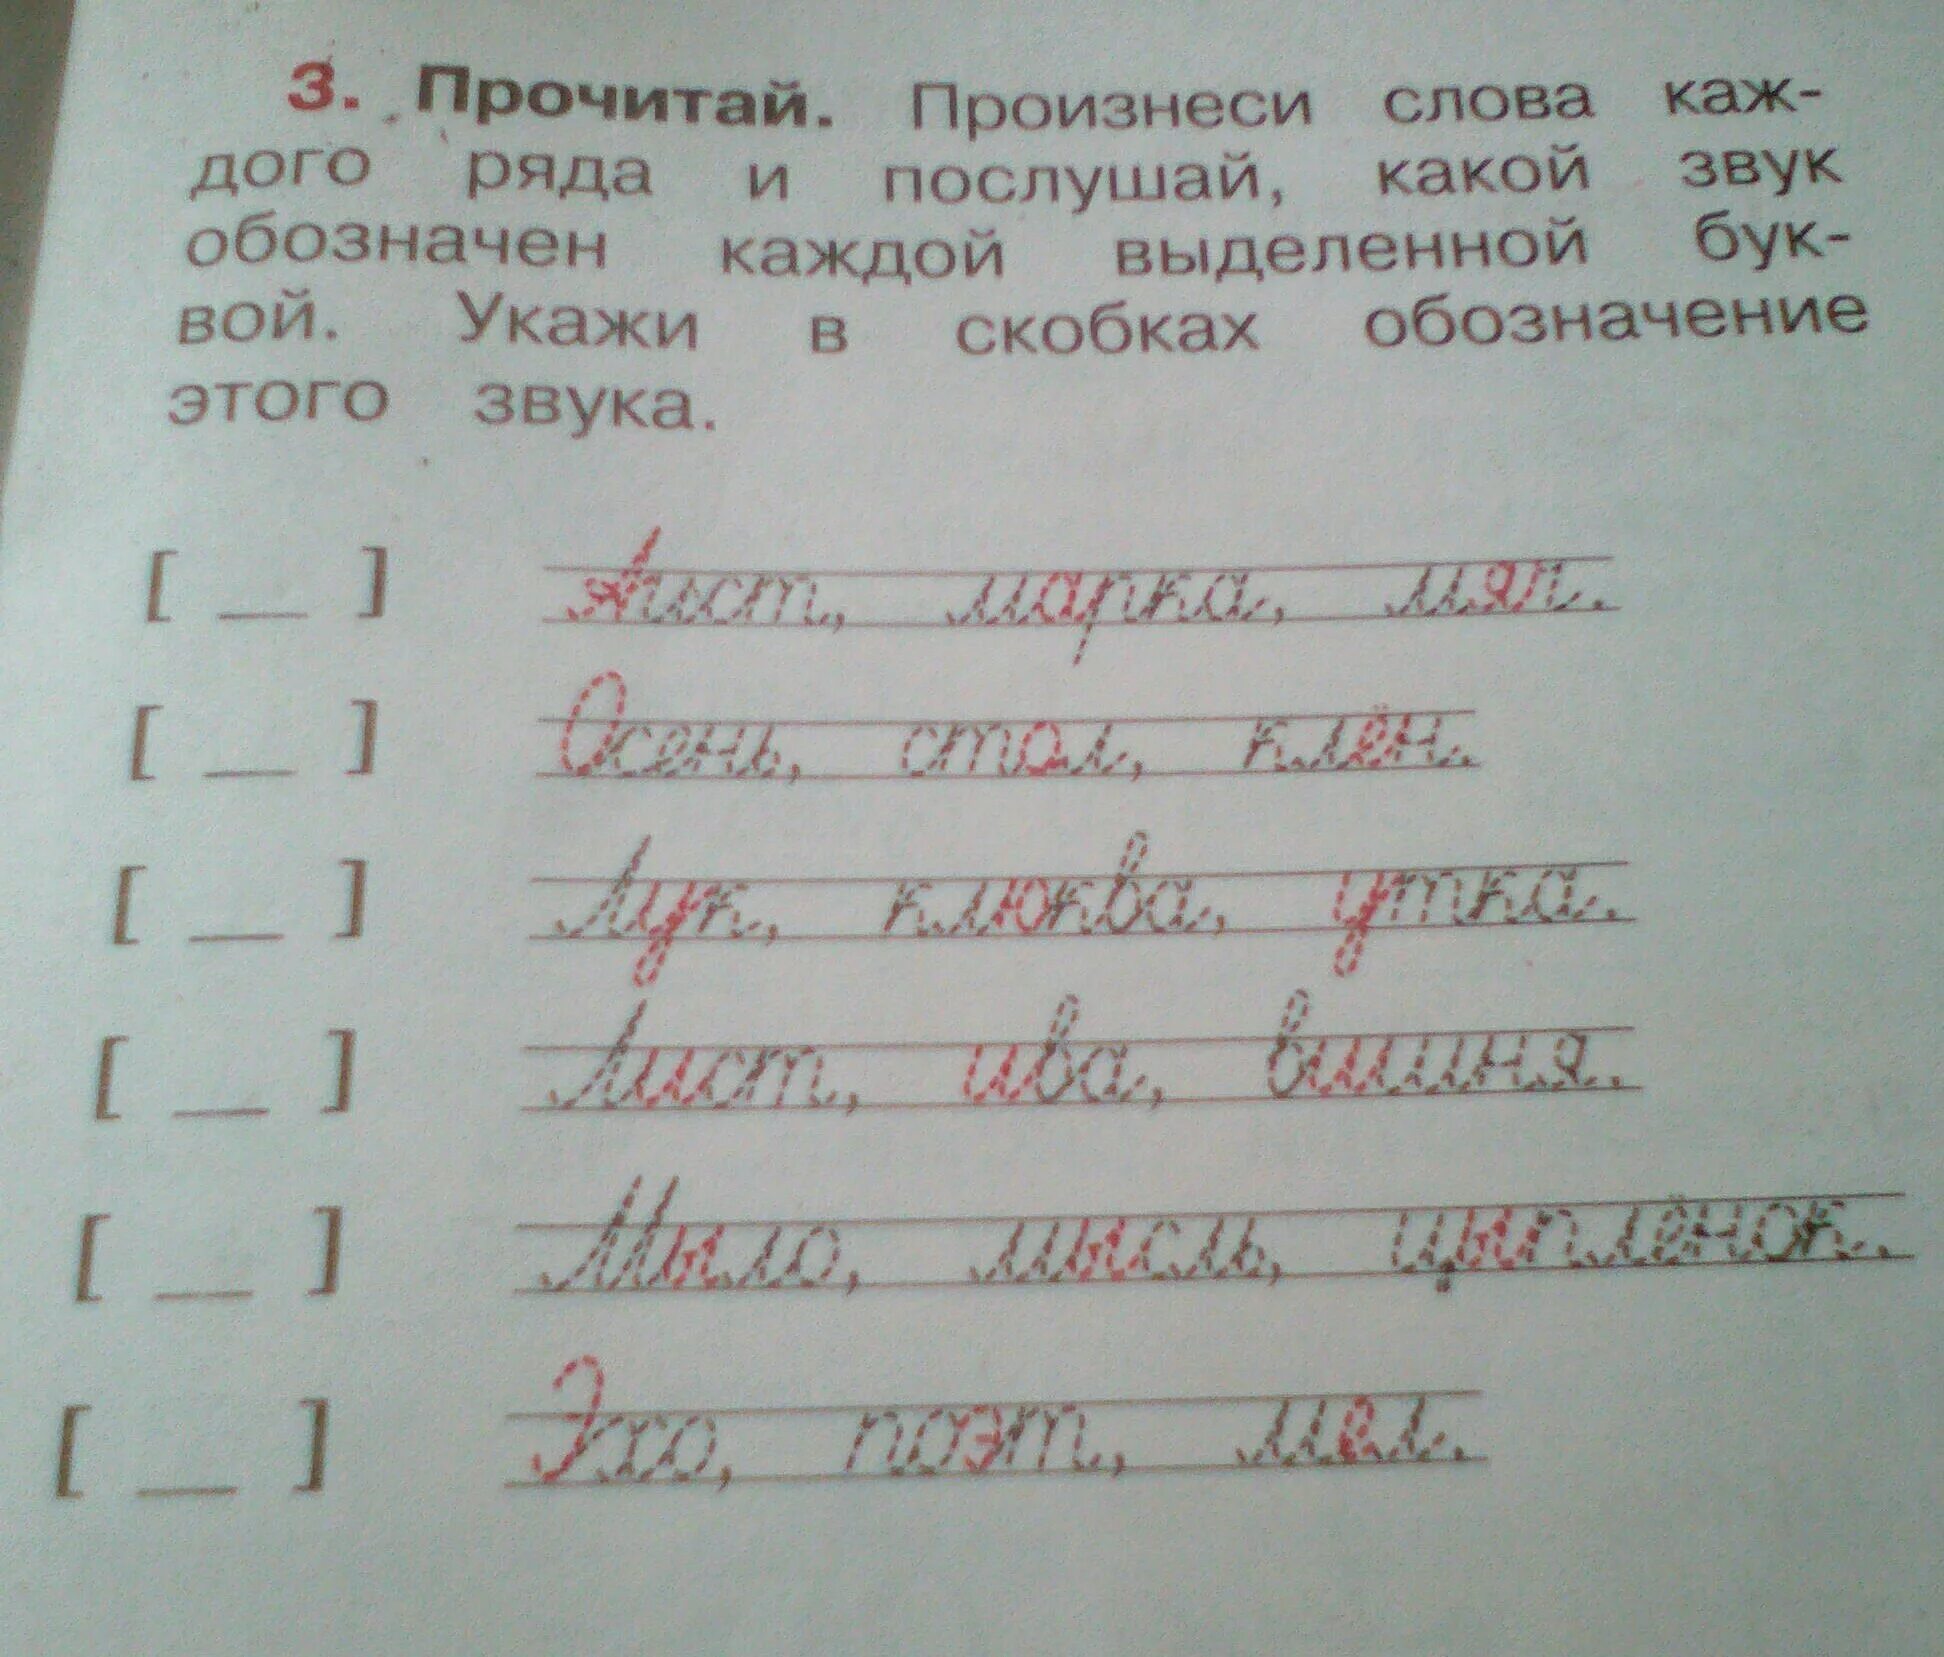 3. Прочитай. Произнеси слова каж-
дого ряда и послушай, какой звук
обозначен каждой выделенной бук-
вой. Укажи в скобках обозначение
этого звука.
[ __ ] Аист, марка, мяч.
[ __ ] Осень, стол, клён.
[ __ ] Лук, клюква, утка.
[ __ ] Лист, ива, вишня.
[ __ ] Мыло, мысль, цыплёнок.
[ __ ] Эхо, поэт, мел.